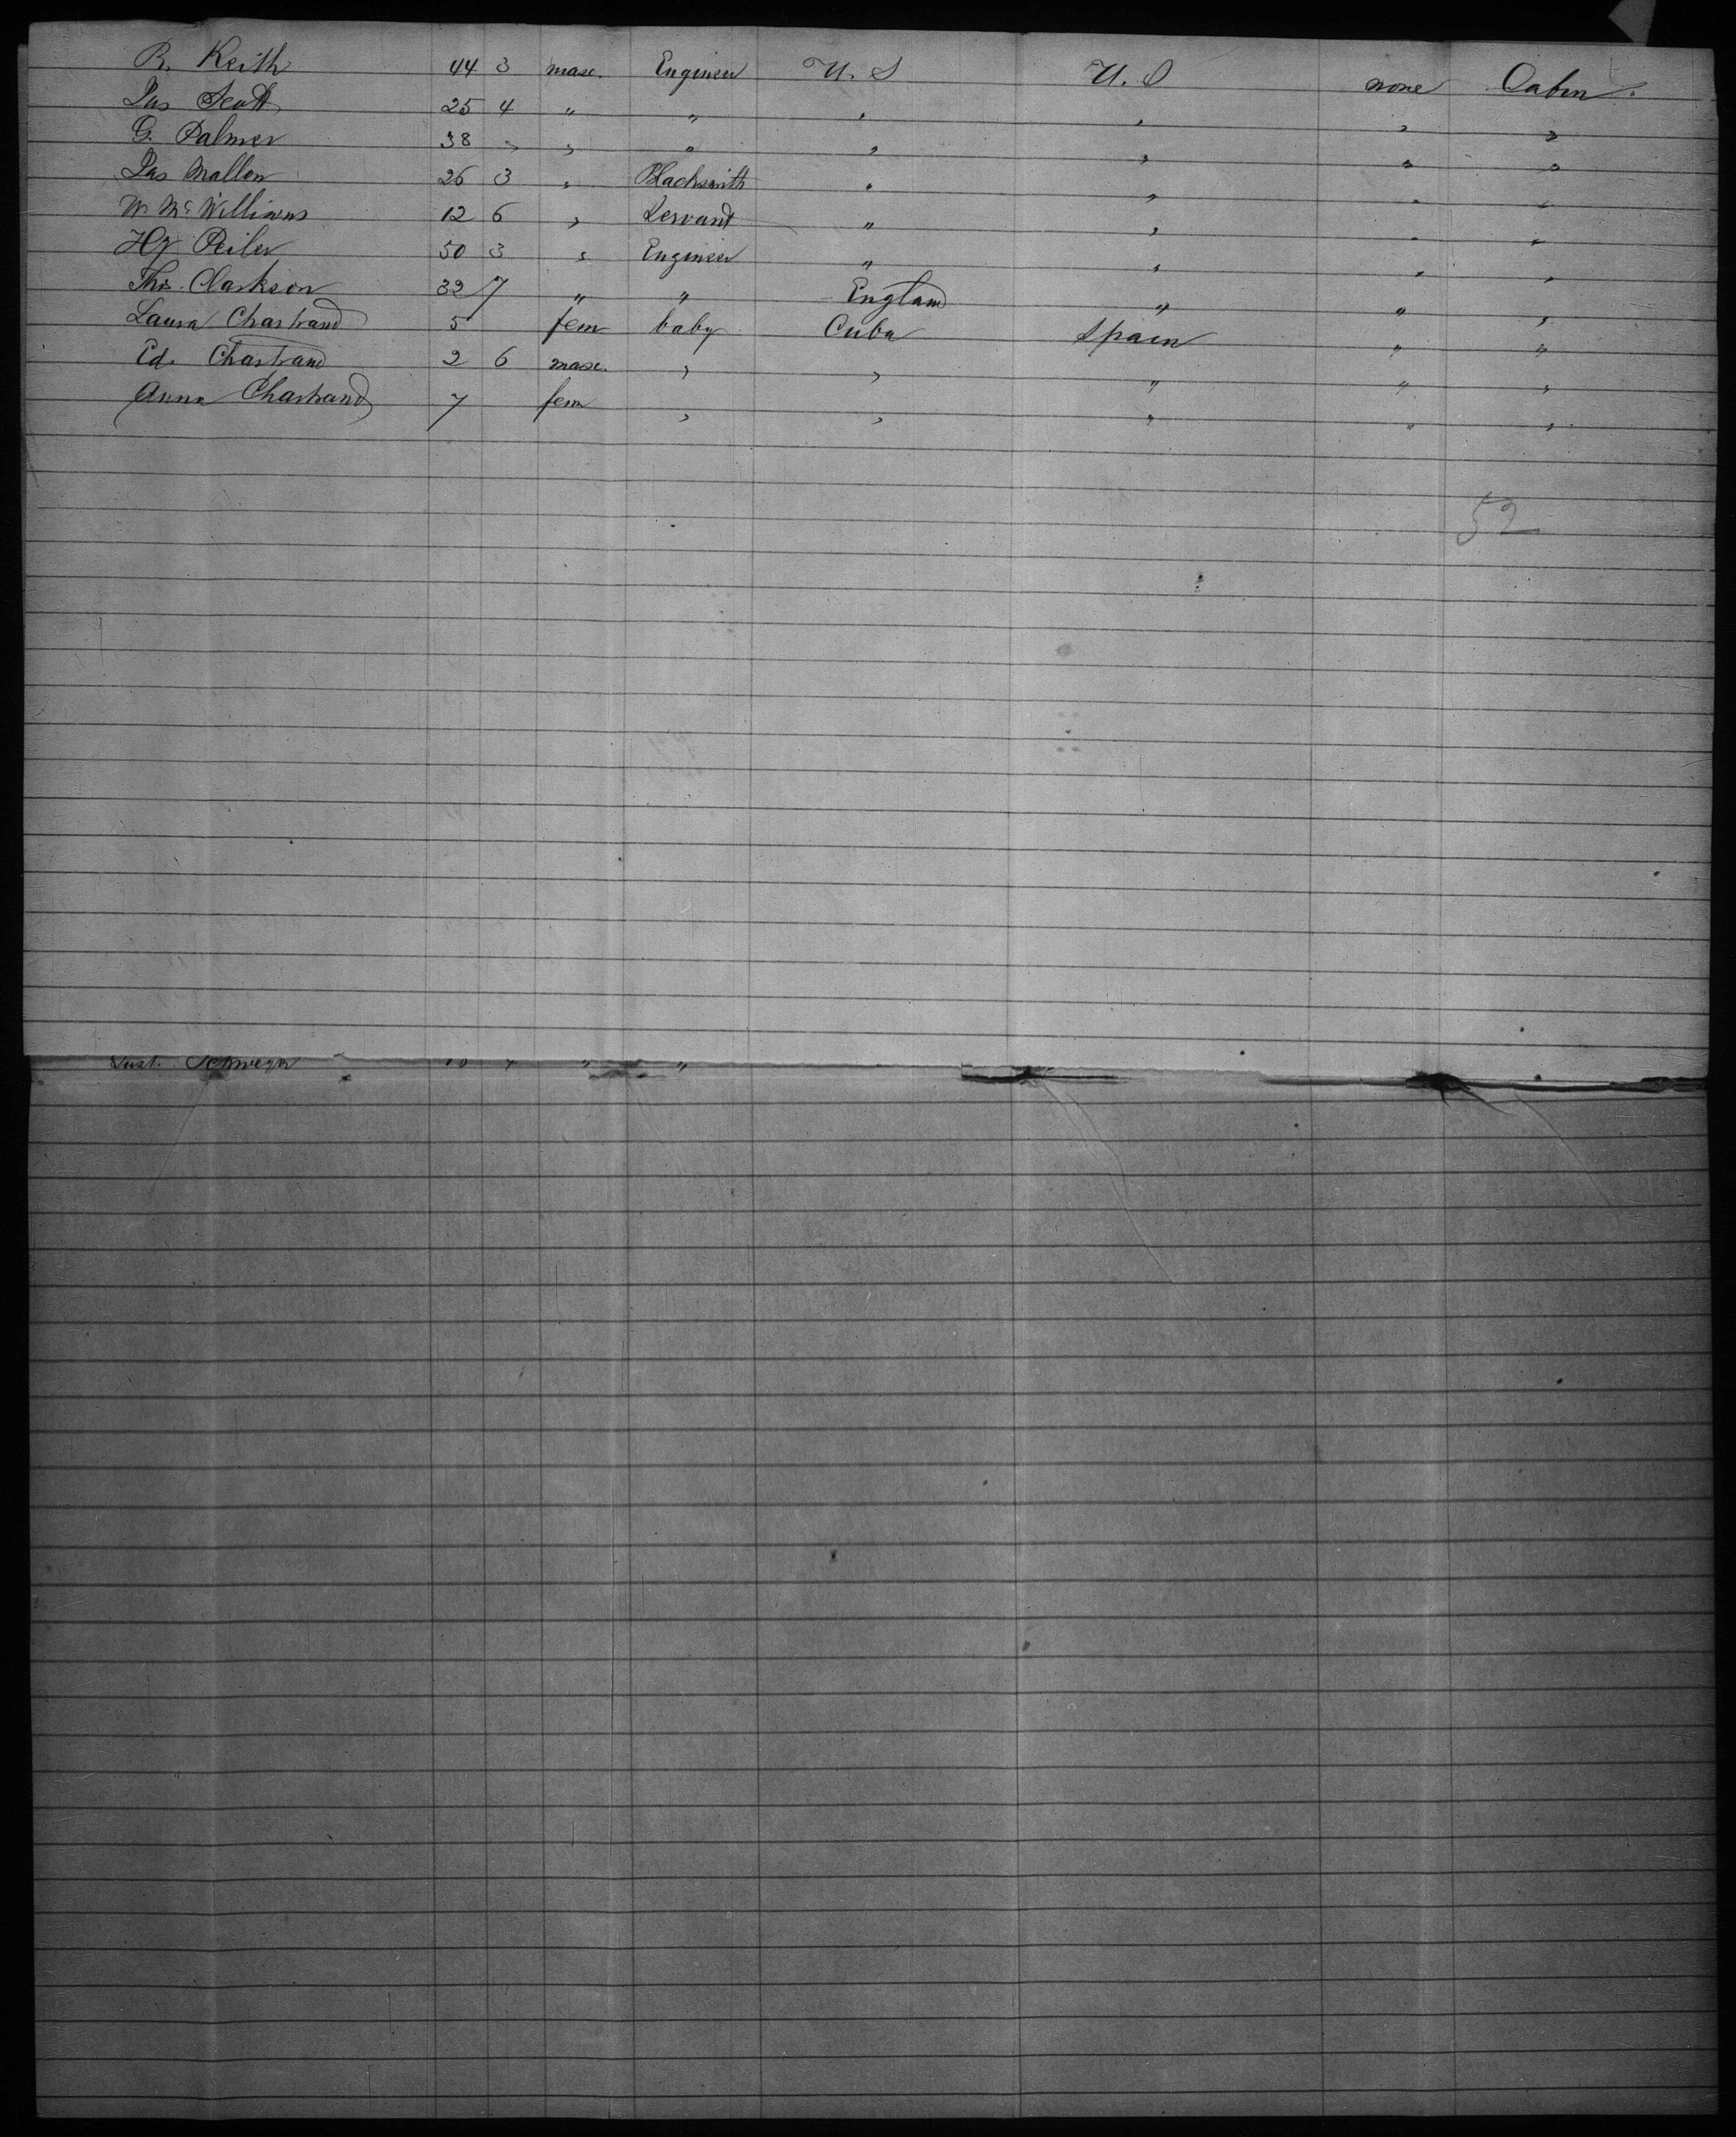 R. Keith 44 3 masc. Engineer U. S U. S none Cabin.
Jas Scott 25 4 " " " " " "
G. Palmer 38 " " " " " " "
Jas Mallon 26 3 " Blacksmith " " " "
W. McWilliams 12 6 " Servant " " " "
Hy Peiler 50 3 " Engineer " " " "
Thos. Clarkson 32 7 " " England " " "
Laura Chartrand 5 fem baby Cuba Spain " "
Ed. Chartrand 2 6 masc. " " " " "
Anna Chartrand 7 fem " " " " "
52
" "